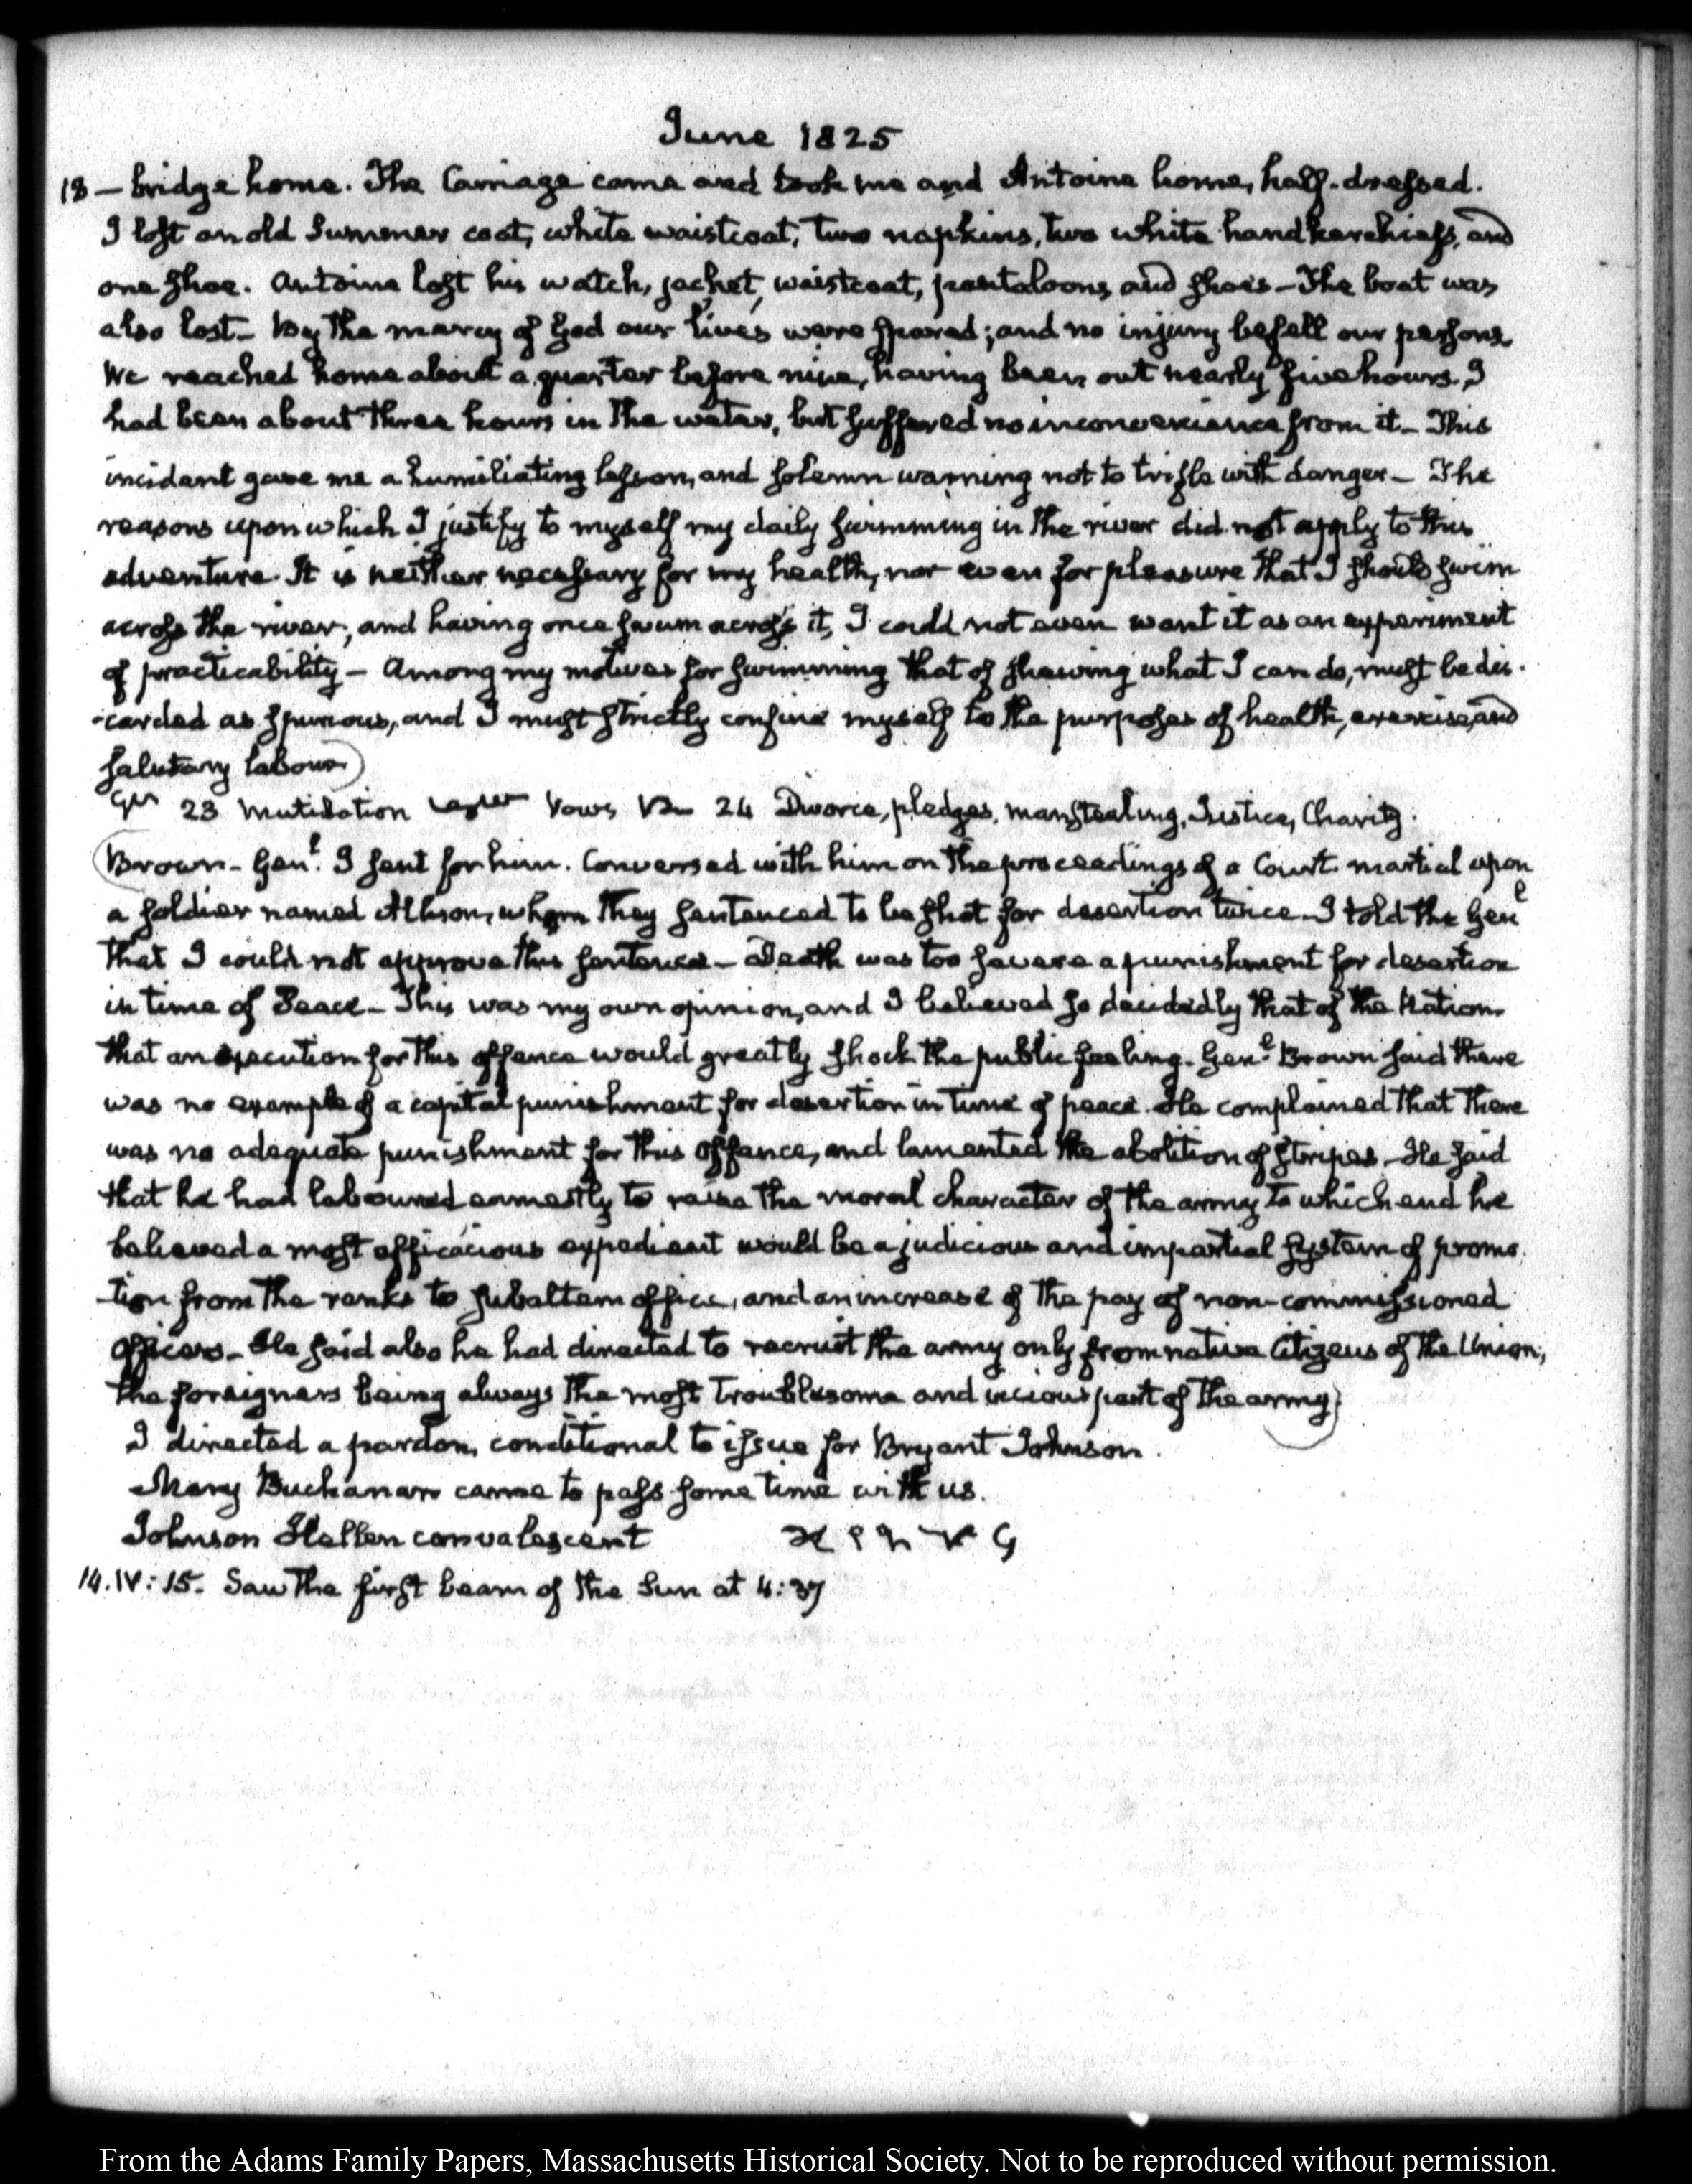 June 1825
13 — bridge home. The Carriage came and took me and Antoine home, half-dressed.
I lost an old Summer coat, white waistcoat, two napkins, two white handkerchiefs, and
one shoe. Antoine lost his watch, jacket, waistcoat, pantaloons and shoes – The boat was
also lost – By the mercy of God our lives were spared; and no injury befell our persons.
We reached home about a quarter before nine, having been out nearly five hours. I
had been about three hours in the water, but suffered no inconvenience from it – This
incident gave me a humiliating lesson, and solemn warning not to trifle with danger – The
reasons upon which I justify to myself my daily swimming in the river did not apply to this
adventure. It is neither necessary for my health, nor even for pleasure that I should swim
across the river, and having once swum across it, I could not even want it as an experiment
of practicability – Among my motives for swimming that of shewing what I can do, must be dis-
-carded as spurious, and I must strictly confine myself to the purposes of health, exercise, and
salutary labour)
23 Mutilation Vows 24 Divorce, pledges, manstealing, Justice, Charity.
(Brown – Genl. I sent for him. Conversed with him on the proceedings of a Court martial upon
a soldier named Allison, whom they sentenced to be shot for desertion twice – I told the Genl
that I could not approve this sentence – Death was too severe a punishment for desertion
in time of Peace – This was my own opinion, and I believed so decidedly that of the Nation
that an execution for this offence would greatly shock the public feeling. Genl Brown said there
was no example of a capital punishment for desertion in time of peace. He complained that there
was no adequate punishment for this offence, and lamented the abolition of stripes – He said
that he had laboured earnestly to raise the moral character of the army to which end he
believed a most efficacious expedient would be a judicious and impartial system of promo-
-tion from the ranks to subaltern office, and an increase of the pay of non-commissioned
officers – He said also he had directed to recruit the army only from native Citizens of the Union;
the foreigners being always the most troublesome and vicious part of the army)
I directed a pardon, conditional to issue for Bryant Johnson.
Mary Buchanan came to pass some time with us.
Johnson Hellen convalescent
14. IV: 15. Saw the first beam of the Sun at 4:37
From the Adams Family Papers, Massachusetts Historical Society. Not to be reproduced without permission.